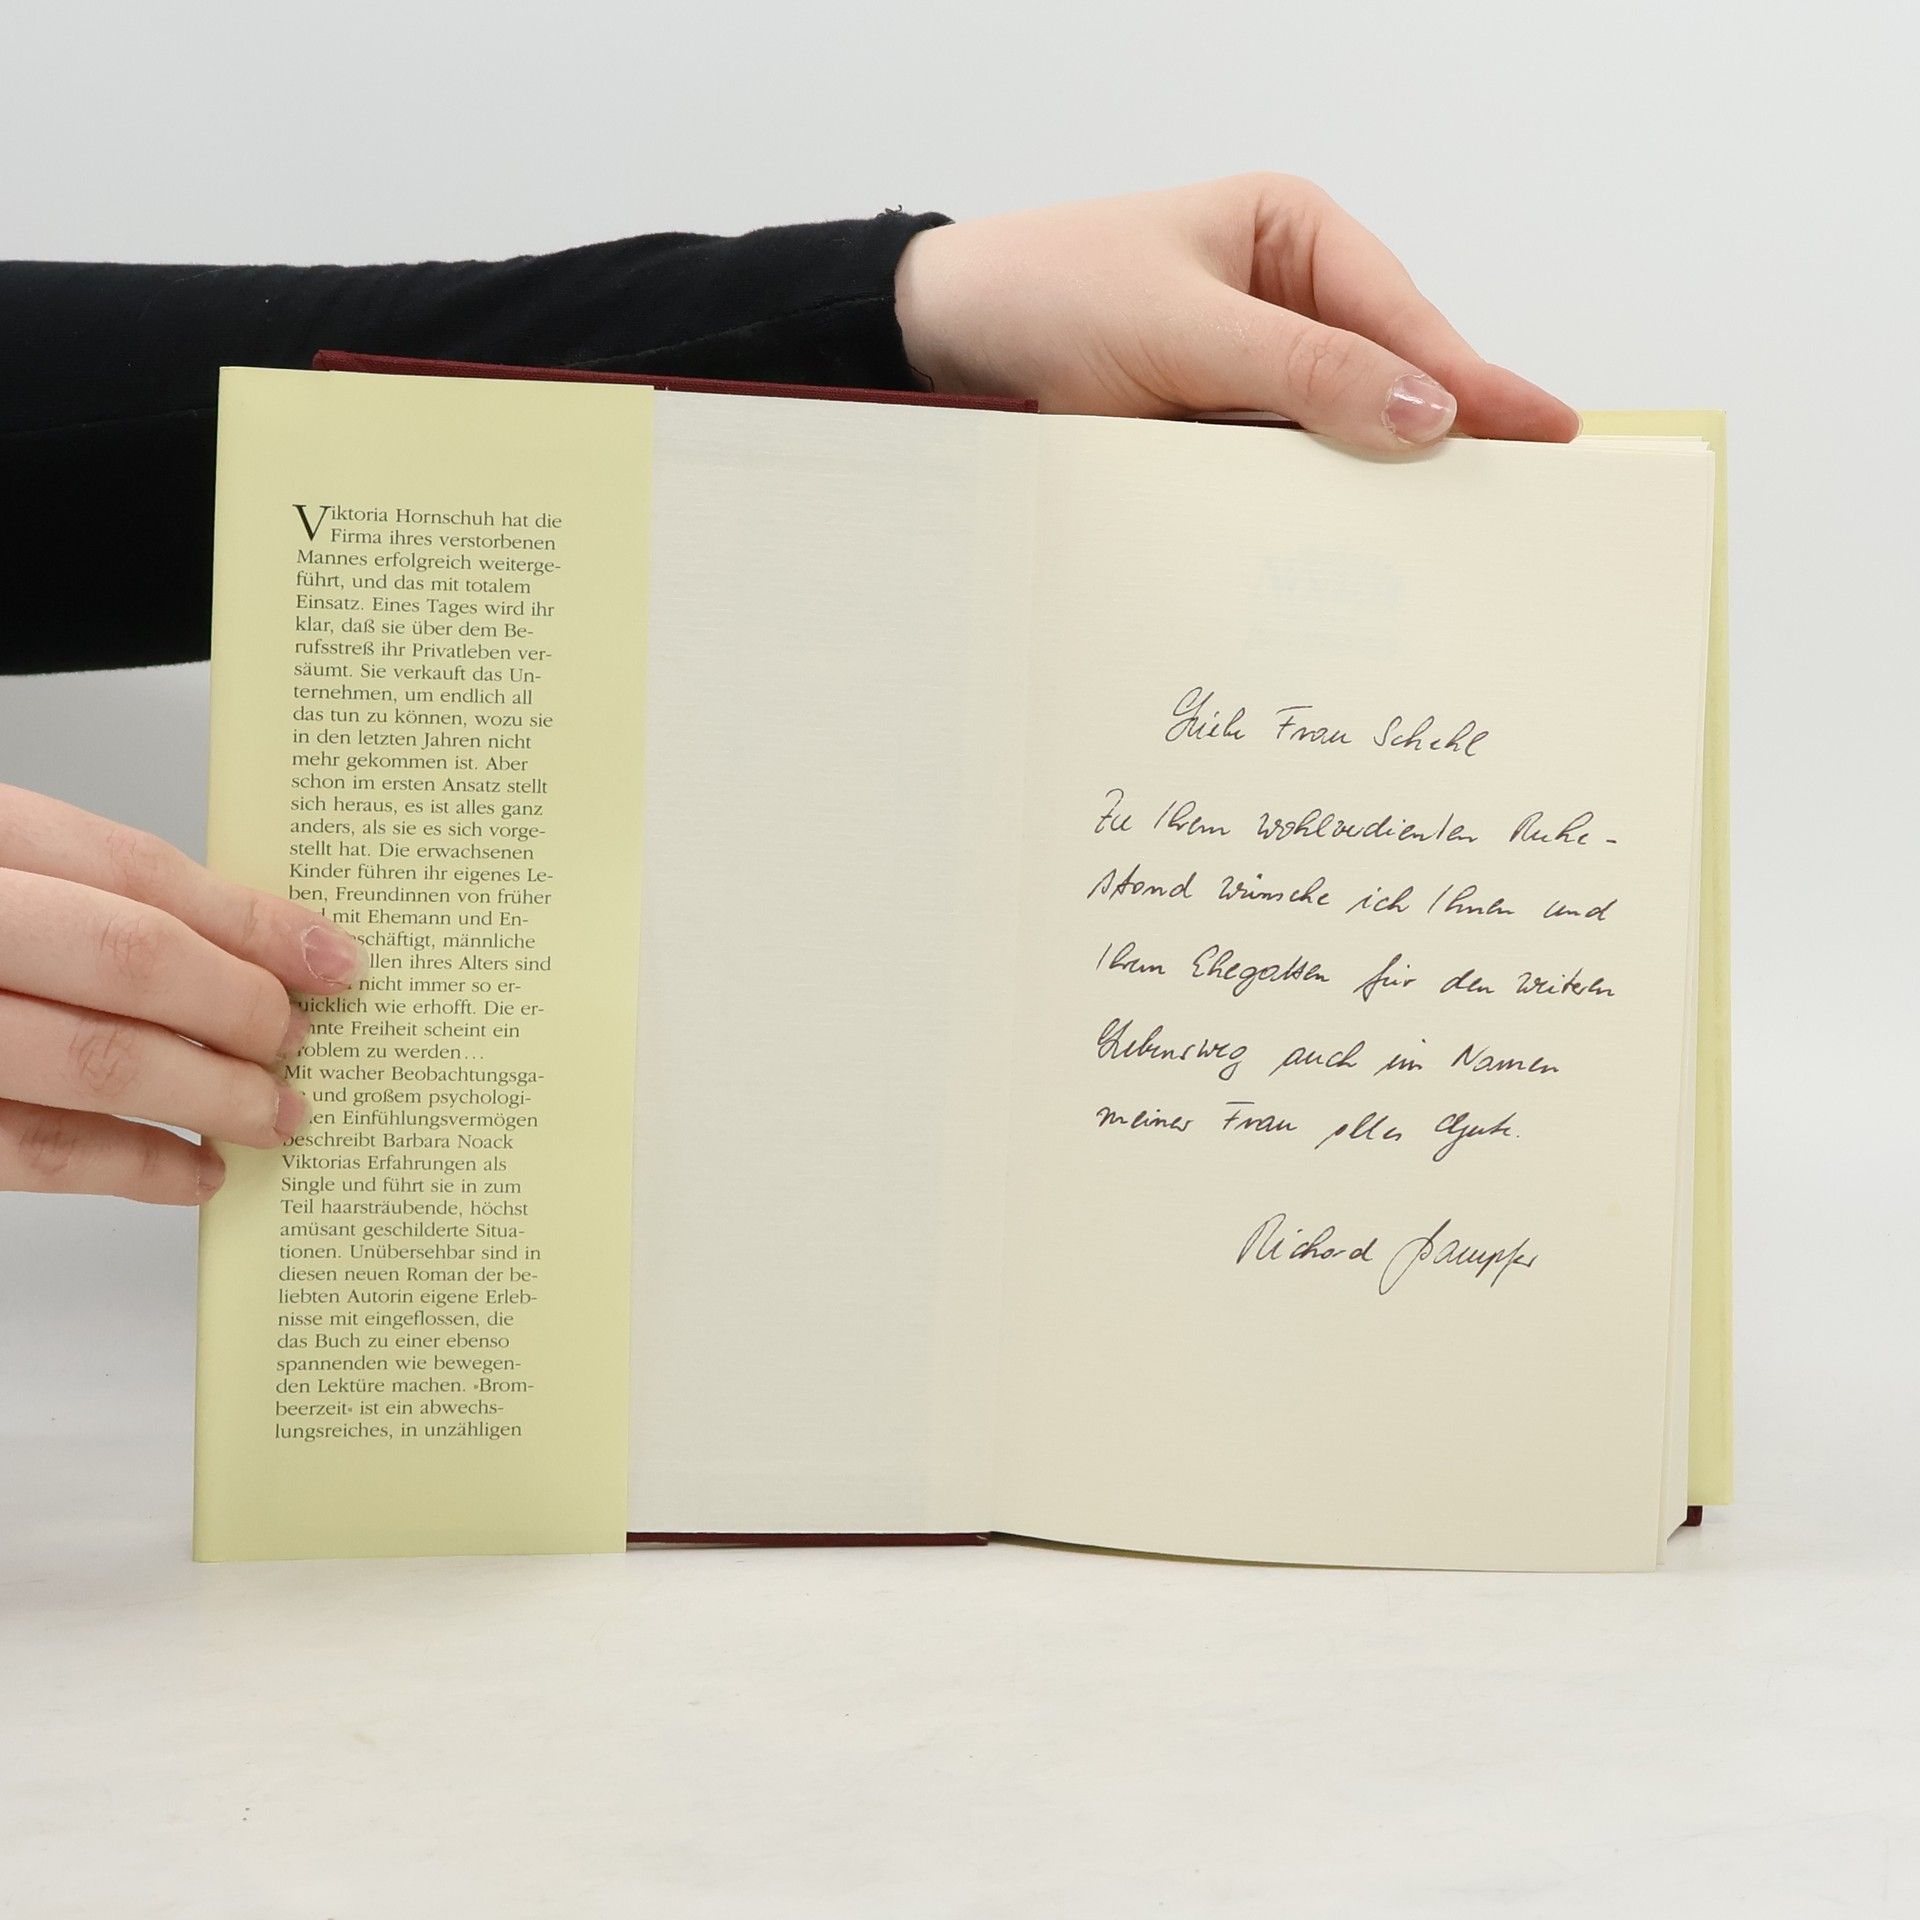 Viktoria Hornschuh hat die
Firma ihres verstorbenen
Mannes erfolgreich weiterge-
führt, und das mit totalem
Einsatz. Eines Tages wird ihr
klar, daß sie über dem Be-
rufsstreß ihr Privatleben ver-
säumt. Sie verkauft das Un-
ternehmen, um endlich all
das tun zu können, wozu sie
in den letzten Jahren nicht
mehr gekommen ist. Aber
schon im ersten Ansatz stellt
sich heraus, es ist alles ganz
anders, als sie es sich vorge-
stellt hat. Die erwachsenen
Kinder führen ihr eigenes Le-
ben, Freundinnen von früher
mit Ehemann und En-
männliche
ihres Alters sind
nicht immer so er-
quicklich wie erhofft. Die er-
Freiheit scheint ein
Problem zu werden...
Mit wacher Beobachtungsga-
und großem psychologi-
Einfühlungsvermögen
beschreibt Barbara Noack
Viktorias Erfahrungen als
Single und führt sie in zum
Teil haarsträubende, höchst
amüsant geschilderte Situa-
tionen. Unübersehbar sind in
diesen neuen Roman der be-
liebten Autorin eigene Erleb-
nisse mit eingeflossen, die
das Buch zu einer ebenso
spannenden wie bewegen-
den Lektüre machen. »Brom-
beerzeit« ist ein abwechs-
lungsreiches, in unzähligen
Liebe Frau Schehl
Zu Ihrem wohlverdienten Ruhe-
stand wünsche ich Ihnen und
Ihrem Ehegatten für den weiteren
Lebensweg auch im Namen
meiner Frau alles Gute.
Richard Dampfer